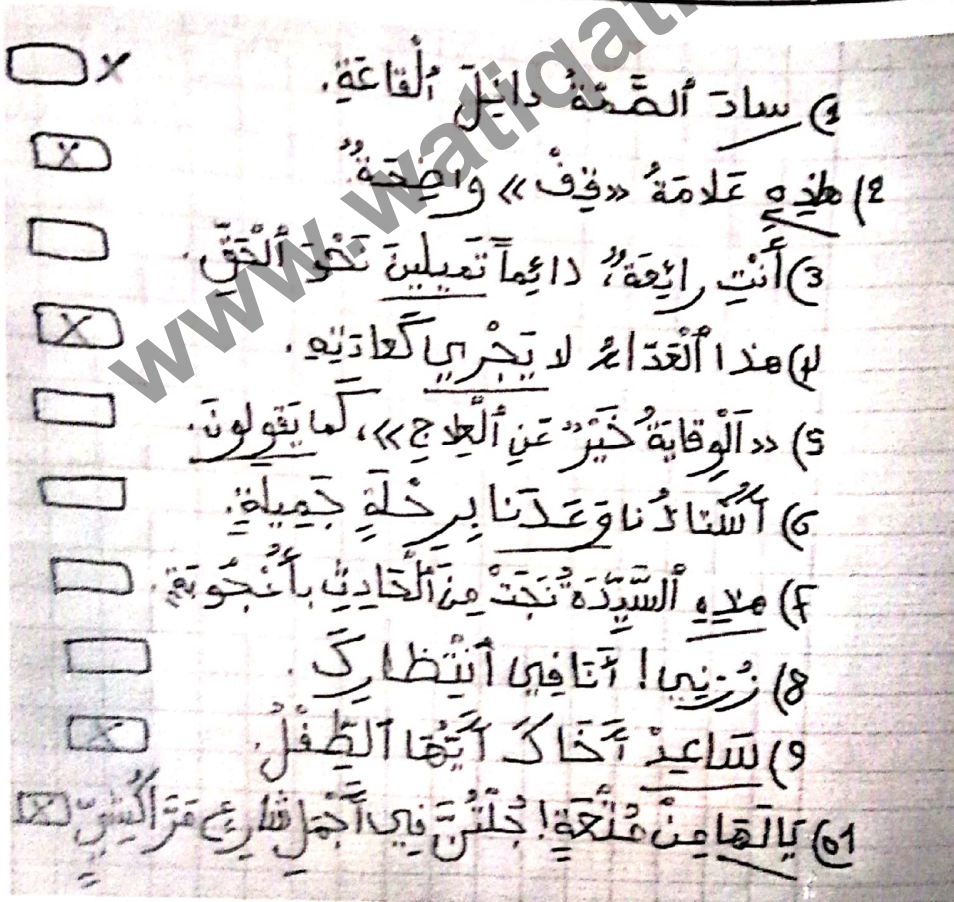 www.watiqati
1) سادَ ٱلصَّمْتُ داخِلَ ٱلْقاعَةِ. X
2) هٰذِهِ عَلامَةُ «قِفْ» واضِحَةٌ X
3) أَنْتِ رائِعَةٌ، دائِماً تَميلينَ نَحْوَ ٱلْحَقِّ.
4) هذا ٱلْعَدّاءُ لا يَجْري كَعادَتِهِ. X
5) «اَلْوِقايَةُ خَيْرٌ عَنِ ٱلْعِلاجِ»، كَما يَقولونَ.
6) أُسْتاذُنا وَعَدَنا بِرِحْلَةٍ جَميلَةٍ.
7) هذِهِ ٱلسَّيِّدَةُ نَجَتْ مِنَ ٱلْحادِثِ بِأُعْجُوبَةٍ.
8) زُرْني! أَنا في ٱنْتِظارِكَ.
9) سَاعِدْ أَخَاكَ أَيُّهَا ٱلطِّفْلُ. X
10) يَالَهَا مِنْ مُتْعَةٍ! جُلْتُنَّ في أَجْمَلِ شارِعٍ مَرَّاكُشِيٍّ X